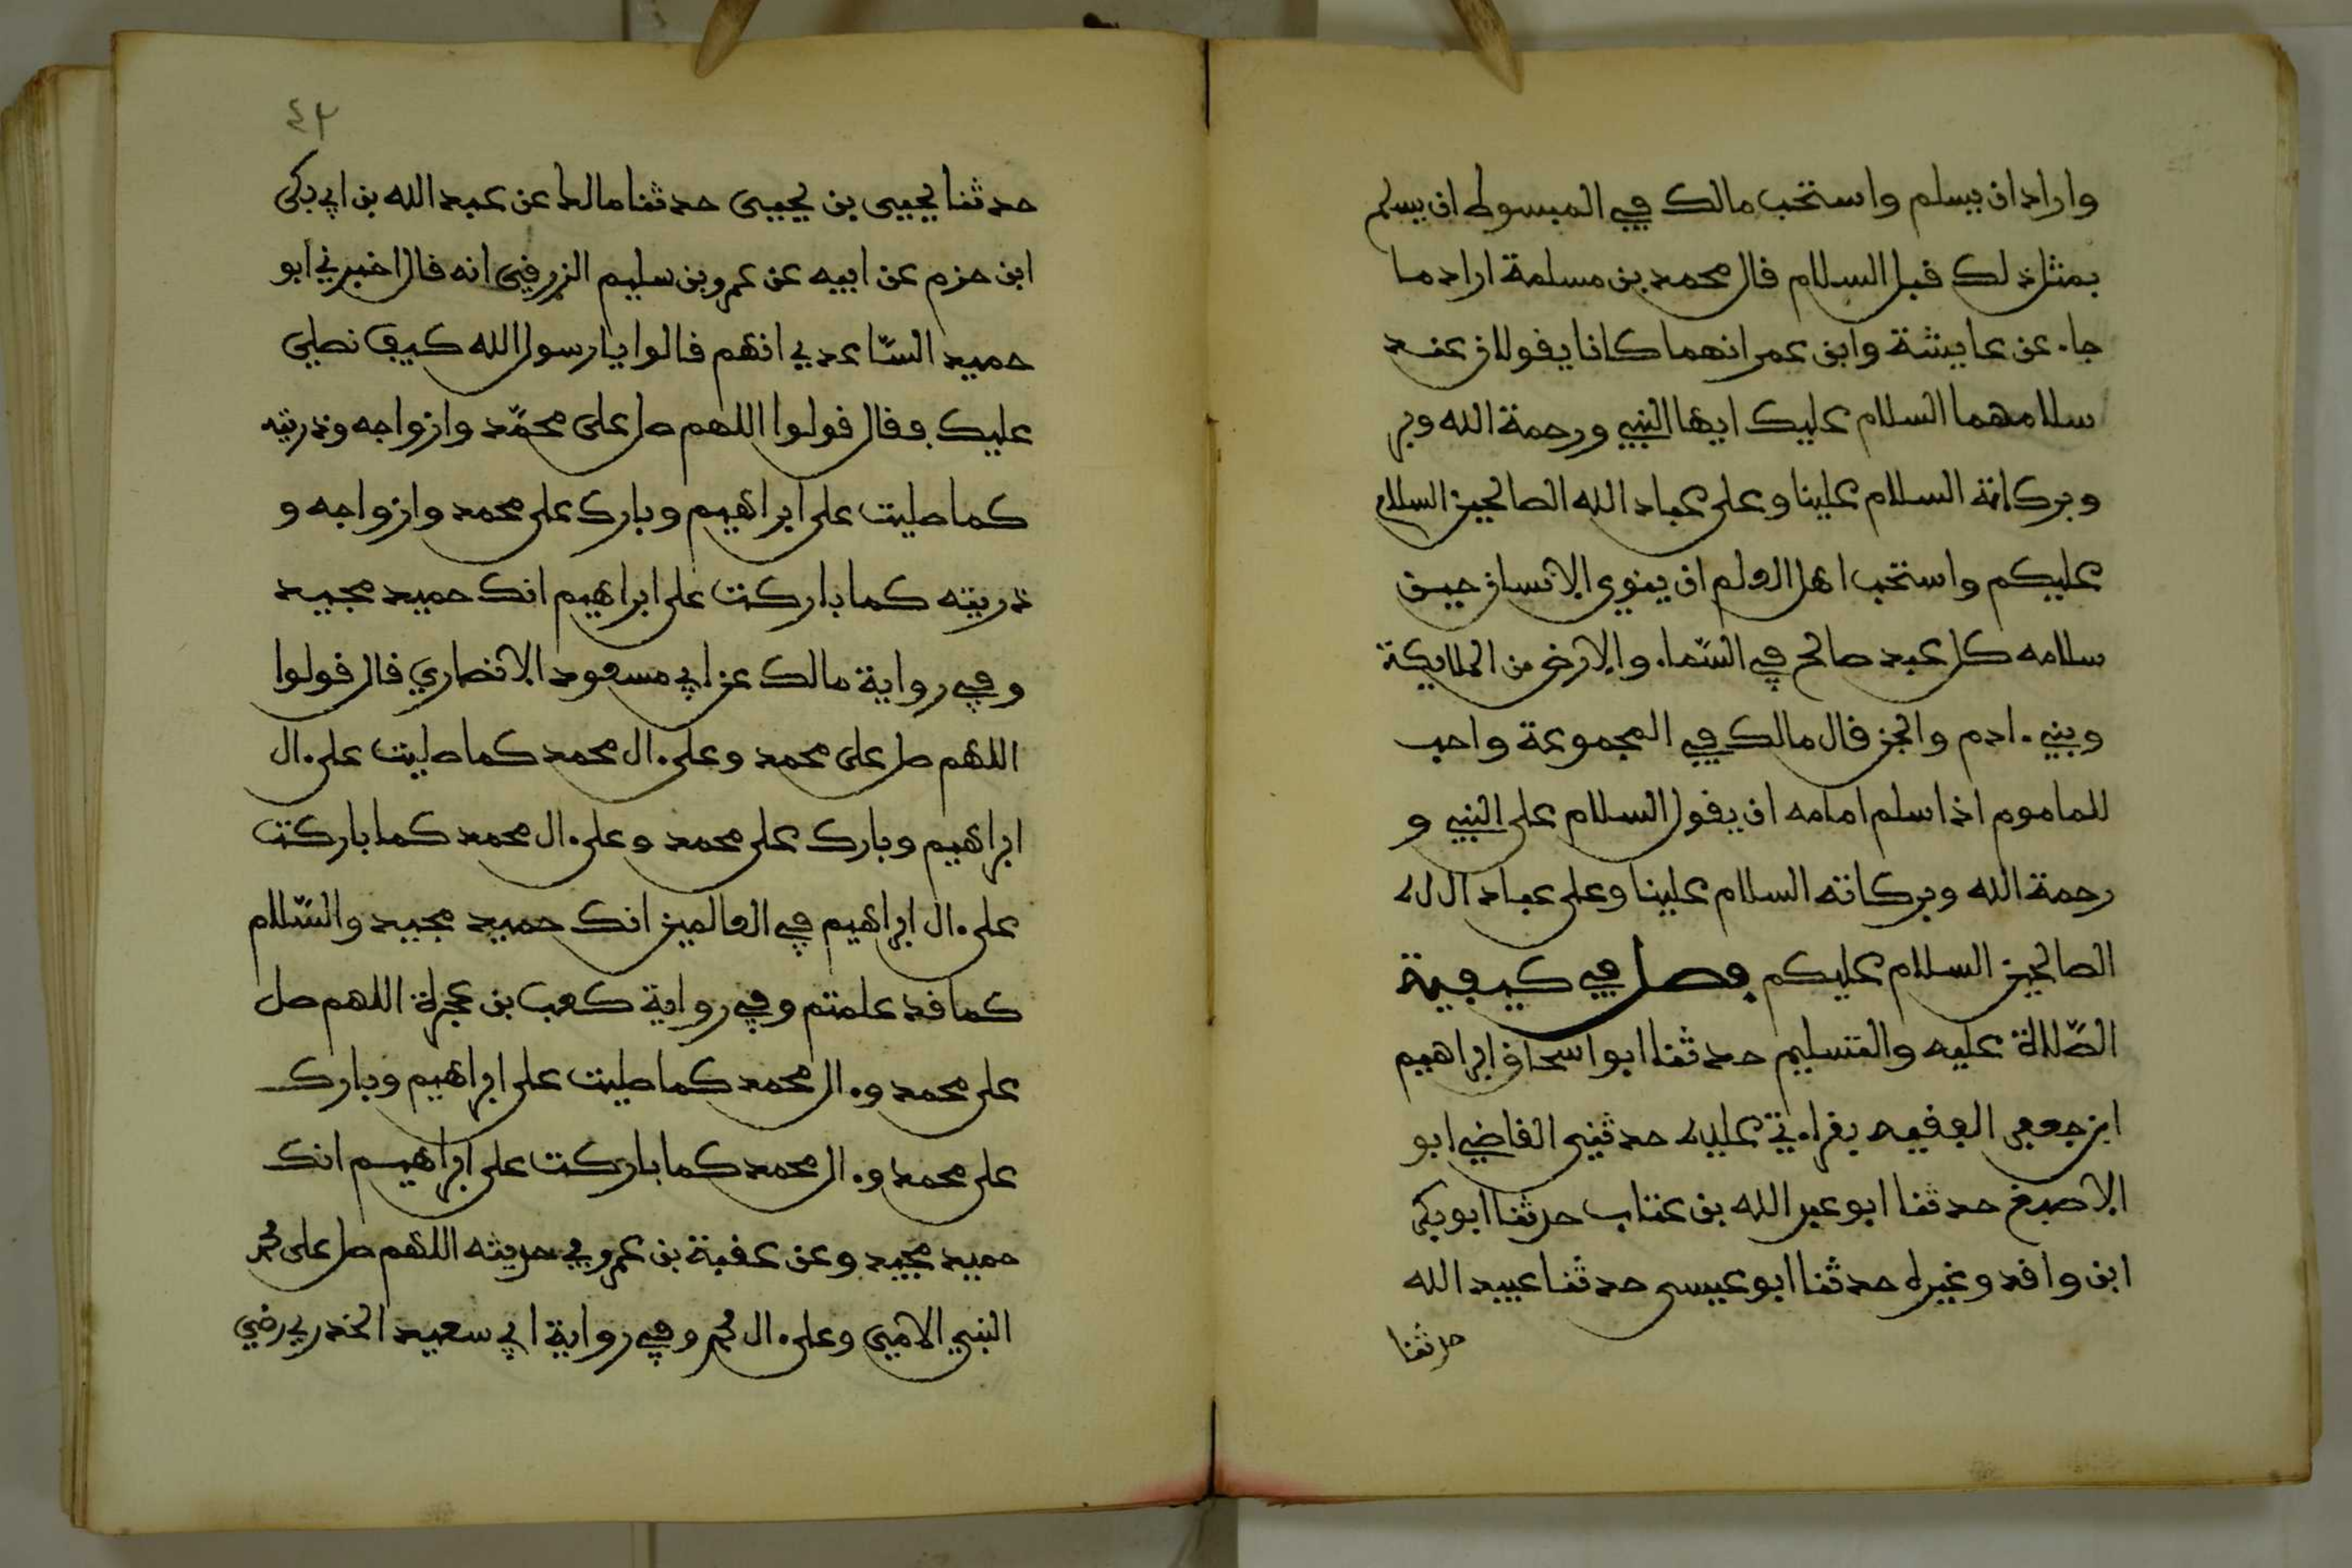 واراد ان يسلم واستحب مالك في المبسوط ان يسلم
بمثل ذلك قبل السلام قال محمد بن مسلمة اراد ما
جاء عن عايشة وابن عمر انهما كانا يقولان عند
سلامهما السلام عليك ايها النبي ورحمة الله وبر
وبركاته السلام علينا وعلى عباد الله الصالحين السلام
عليكم واستحب اهل العلم ان ينوي الانسان حين
سلامه كل عبد صالح في السّماء والارض من الملايكة
وبني ءادم والجن قال مالك في المجموعة واحب
للماموم اذا سلم امامه ان يقول السلام على النبي و
رحمة الله وبركاته السلام علينا وعلى عباد الله
الصالحين السلام عليكم فصل في كيفية
الصّلاة عليه والتسليم حدثنا ابو اسحاق ابراهيم
ابن جعفر الفقيه بقراءتي عليه حدثني القاضي ابو
الاصبغ حدثنا ابو عبد الله بن عتاب حدثنا ابو بكر
ابن وافد وغيره حدثنا ابو عيسى حدثنا عبيد الله
حدثنا
٤٣
حدثنا يحيى بن يحيى حدثنا مالك عن عبد الله بن ابي بكر
ابن حزم عن ابيه عن عمرو بن سليم الزرقي انه قال اخبرني ابو
حميد السّاعدي انهم قالوا يا رسول الله كيف نصلي
عليك فقال قولوا اللهم صل على محمّد وازواجه وذريته
كما صليت على ابراهيم وبارك على محمد وازواجه و
ذريته كما باركت على ابراهيم انك حميد مجيد
وفي رواية مالك عن ابي مسعود الانصاري قال قولوا
اللهم صل على محمد وعلى ءال محمد كما صليت على ءال
ابراهيم وبارك على محمد وعلى ءال محمد كما باركت
على ءال ابراهيم في العالمين انك حميد مجيد والسّلام
كما قد علمتم وفي رواية كعب بن عجرة اللهم صل
على محمد وءال محمد كما صليت على ابراهيم وبارك
على محمد وءال محمد كما باركت على ابراهيم انك
حميد مجيد وعن عقبة بن عمرو في حديثه اللهم صل على محمد
النبي الامي وعلى ءال محمد وفي رواية ابي سعيد الخدري رضي